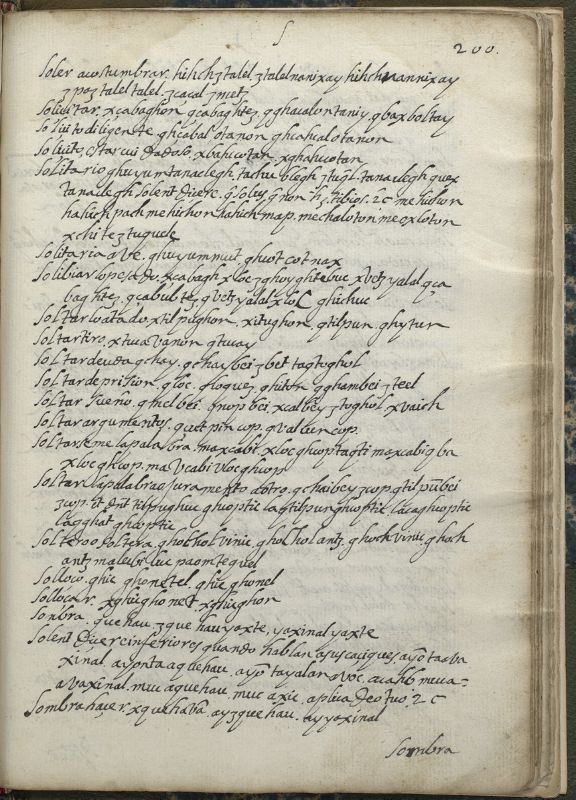 S
200.
Soler acostumbrar. hihch ꜫtalel. ꜫtalel nanixay hihchuannixay
ꜫpoꜫ talel talel. ꜫcacal ꜫmetꜫ
Soliuitar. xcabaghon. qcabaghteꜫ. qghacalontaniy. qbaxboltay
Soliuito diligente. ghcabal otanon ghcahcalotanon
Soliuito, estar cuidadoso. xbahcotan. xghahcotan
Solitario ghuyumtanaclegh. tachu clegh
tanaclegh solent dicere. mehichon
hahich pach mehichon hahich map. mechaloton meoxloton
xchiteꜫ tuquele
Solitaria abe. ghuyummut. ghuot cotnax
Soliviar lopesado. xcabagh xloc ꜫghoyghtebuc xvetꜫ yalal. qca
baghteꜫ. qcabulteꜫ. qvetꜫ yalal xlol ghichuc
Soltar lo atado. xtilpughon. xitughon. qtilpun. ghytun
Soltar tiro. xtuavanon qtuay
Soltar deuda qchay. qchaybei ꜫbet tagtoghol
Soltar deprision. qloc. qloquez. qhiton. qghambei ꜫteel
Soltar sueño. qhclbei. qnopbei. xcalbey ꜫtoghol. xvaich
Soltar argumentos. quetpin cop. qvalcuncop.
Soltarseme lapalabra. maxcabi. xlocghcop tagti maxcabi qba
xlocghcop. mavcabi vlocghcop
Soltar lapalabra o juramento dotro. qchaibey ꜫcop. qtilpunbei
ꜫcop. et dnt tilpughuc ghcoptic lagtilpunghcoptic lacaghcoptic
lagghat ghcoptic
Soltero o soltera. gholhol vinic. gholhol antꜫ. ghoch vinic. ghoch
antꜫ malebiluc paom tequel
Solloço. ghic ghonetel. ghic ghonel
Solloçar. xghicghonet. xghicghon
Sombra. quehau ꜫquehau yaxte, yaxinal yaxte
Solent dicere inferiores quando hablan asus caciques. ayo tava
xinal. ayonta aquehau. ayo tayalan avoc. acahb mucta-
avaxinal. muc aquehau. muc axic. aplica Deo suo. 2c
Sombra haçer. xquehava. ayꜫquehau. ayyaxinal
Sombra